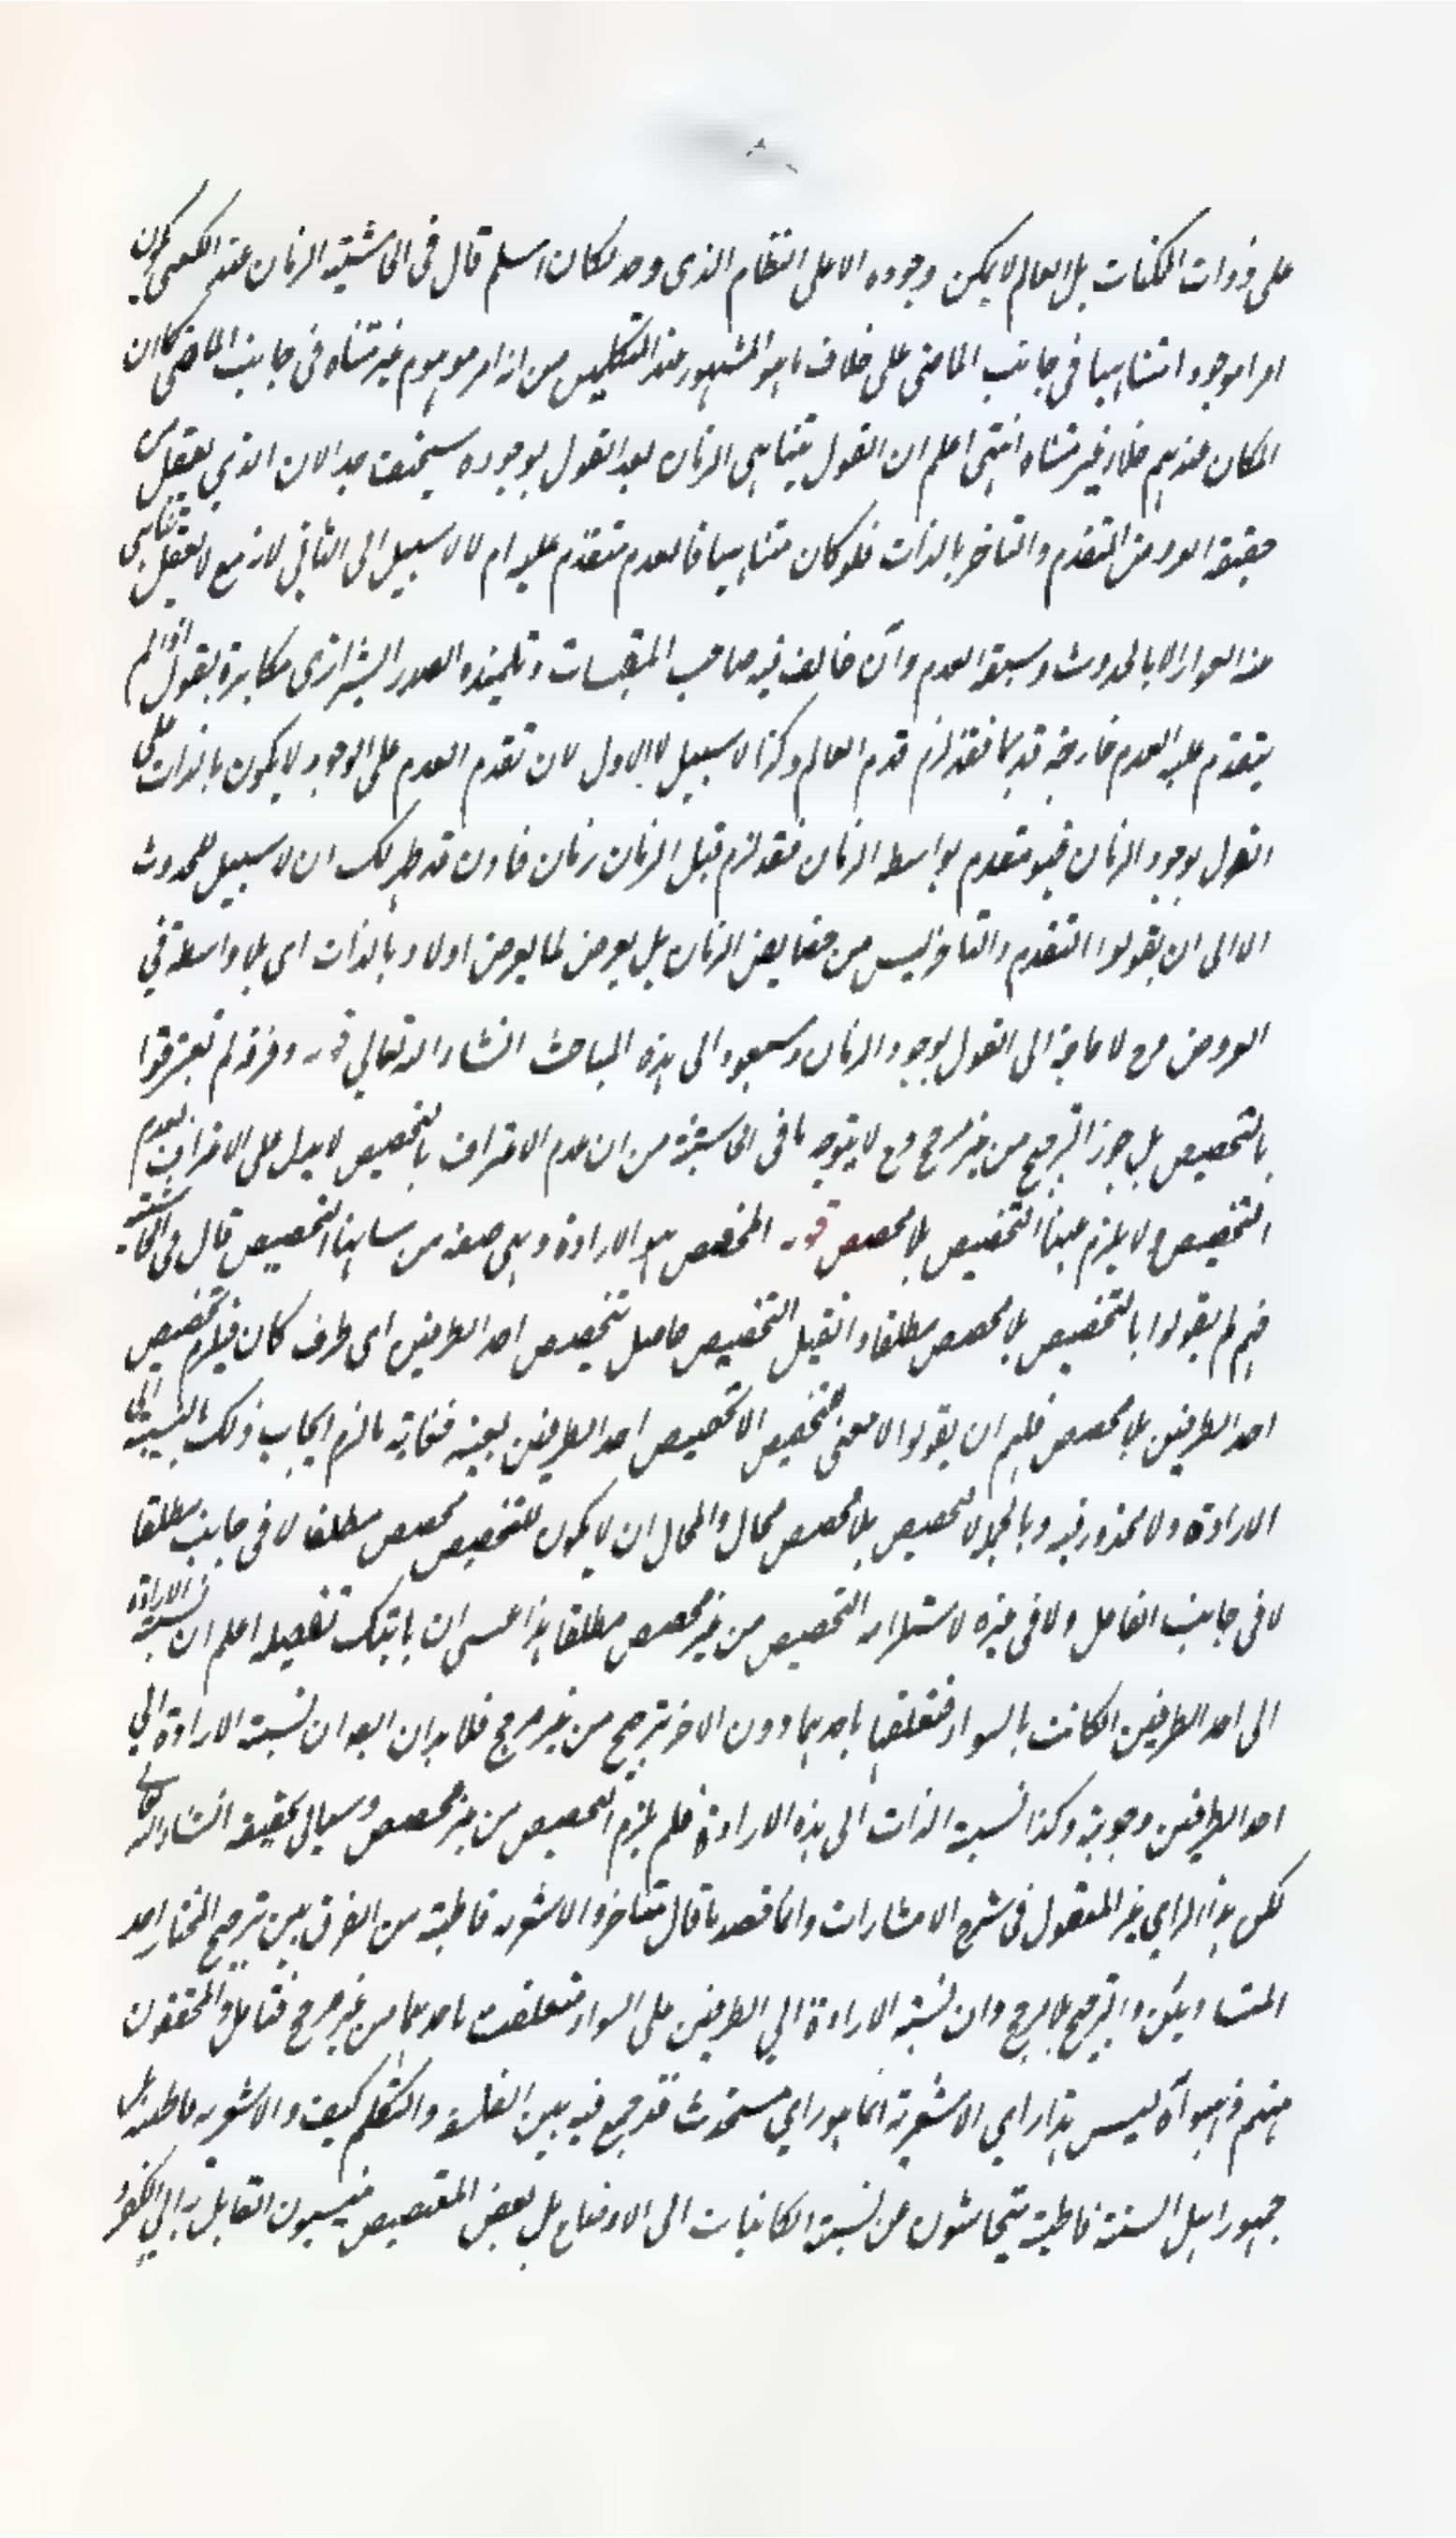 على ذوات الممكنات بل العالم لا يمكن وجوده الا على النظام الذى وجد لكان اسلم قال فى الحاشية الزمان عند الكعبى يكون
امرا موجودا متناهيا فى جانب الماضى على خلاف ما هو المشهور عند المتكلمين من انه امر موهوم غير متناه فى جانب الماضى كما ان
المكان عندهم خلاء غير متناه انتهى اعلم ان القول بتناهى الزمان بعد القول بوجوده سخيف جدا لان الذي يعقل من
حقيقة المتقدم والتاخر بالذات فلو كان متناهيا فالعدم متقدم عليه ام لا لا سبيل الى الثانى لانه مع لا يعقل
الا بالحدوث وسبقة العدم وان خالف فيه صاحب القبسات وتلميذه الصدر الشيرازى مكابرة بقول
يتقدم عليه العدم خارجة قديما فقد لزم قدم العالم وكذا لا سبيل الى الاول لان تقدم العدم على الوجود لا يكون بالذات على
القول بوجود الزمان فهو متقدم بواسطه الزمان فقد لزم قبل الزمان زمان فاذن قد ظهر لك ان لا سبيل للحدوث
الا الى ان يقولوا التقدم والتاخر ليس من خصايص الزمان بل يعرض لما يعرض اولا وبالذات اى بلا واسطة فى
العروض فح لا حاجة الى القول بوجود الزمان وسيعود الى هذه المباحث انشاء الله تعالى قوله وفرقة لم يعترفوا
بالتخصيص بل جوز الترجيح من غير مرجح فح لا يتوجه ما فى الحاشية من ان عدم الاعتراف بالتخصيص لا يدل على الاعتراف بعدم
التخصيص ولا يلزم ههنا التخصيص بلا مخصص قوله المخصص هو الارادة وهى صفة من شانها التخصيص قال فى الحاشية
فهم لم يقولوا بالتخصيص بلا مخصص مطلقا وان قيل التخصيص حاصل بتخصيص احد الطرفين اى طرف كان فيلزم تخصيص
احد الطرفين بلا مخصص فلهم ان يقولوا لا معنى لتخصيص الا تخصيص احد الطرفين بعينه فغاية ما لزم ايجاب ذلك بالنسبة الى
الارادة ولا محذور فيه وبالجملة تخصيص بلا مخصص محال والمحال ان لا يكون للتخصيص مخصص مطلقا لا فى جانب مطلقا
لا فى جانب الفاعل ولا فى غيره لاستلزامه التخصيص من غير مخصص مطلقا هذا عسى ان ياتيك تفصيله اعلم ان نسبة الارادة
الى احد الطرفين ان كانت بالسواء فتعلقها باحدهما دون الاخر ترجيح من غير مرجح فلا بد ان نسبة الارادة الى
احد الطرفين وجوبية وكذا نسبة الذات الى هذه الارادة فلم يلزم التخصيص من غير مخصص وسياتى تحقيقه انشاء الله تعالى
لكن هذا الراي غير المنقول فى شرح الاشارات وانما قصد ما قال متاخروا الاشعرية قاطبة من الفرق بين ترجيح المختار احد
المتساويين والترجيح بلا مرجح وان نسبة الارادة الى الطرفين على السواء متعلقت باحدهما من غير مرجح فتامل والمحققون
منهم ليس هذا راي الاشعرية انما هو راي مستحدث قد جمع فيه بين الفلسفة والتكلم كيف والاشعرية قاطبة بل
جمهور اهل السنة قاطبة يتحاشون عن نسبة الكاينات الى الاوضاع بل بعض المتعصبين ينسبون القايل به الى الكفر